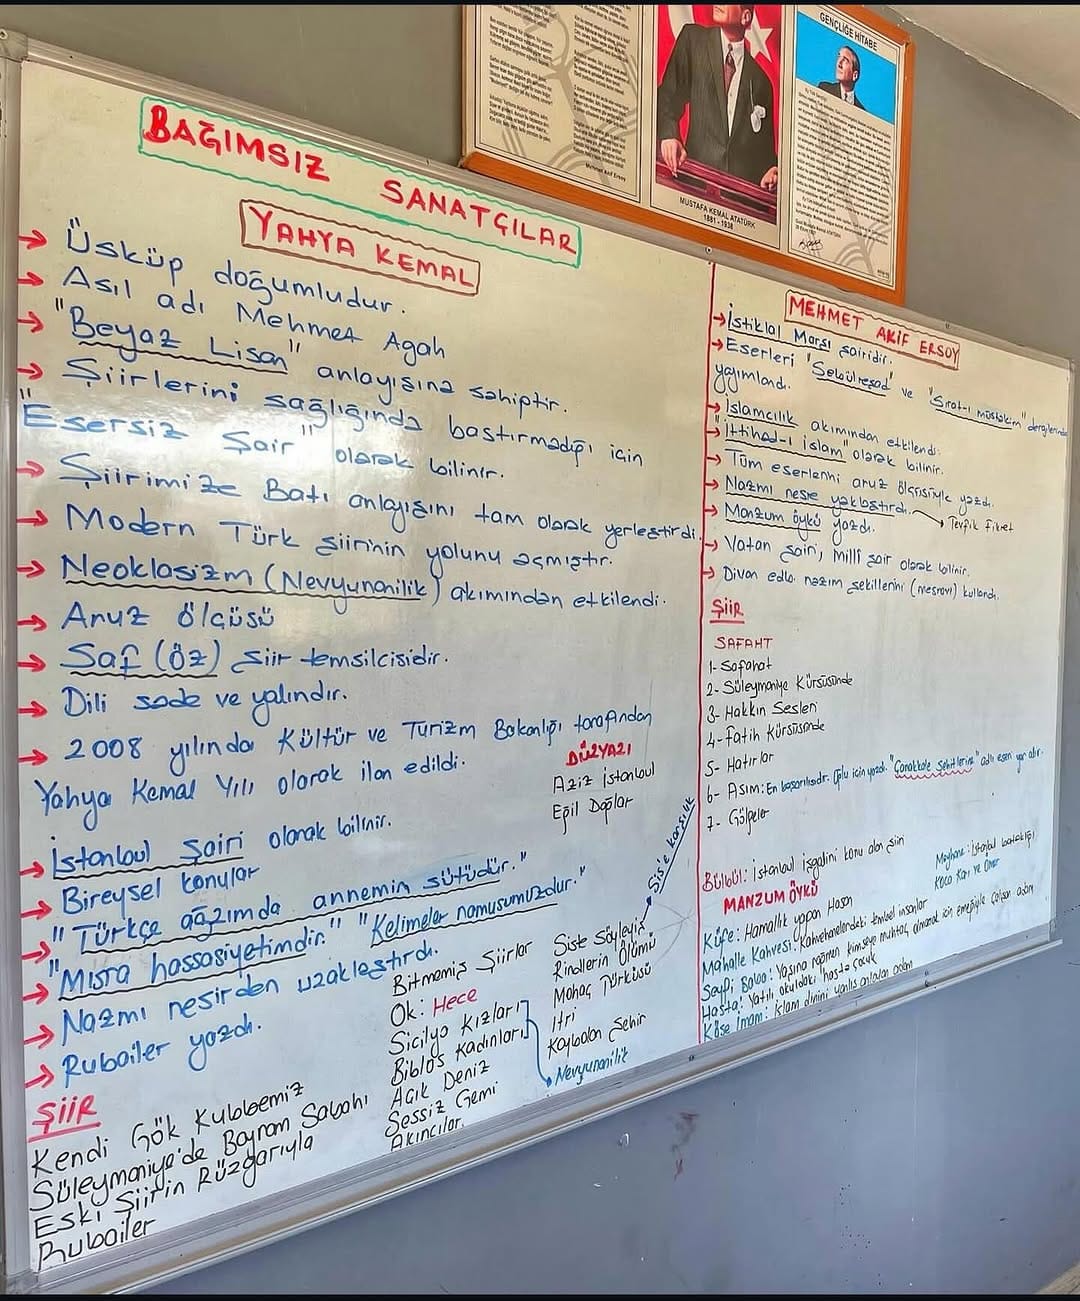 BAĞIMSIZ SANATÇILAR
YAHYA KEMAL
→ Üsküp doğumludur.
→ Asıl adı Mehmet Agah
→ "Beyaz Lisan" anlayışına sahiptir.
→ Şiirlerini sağlığında bastırmadığı için
"Esersiz Şair" olarak bilinir.
→ Şiirimize Batı anlayışını tam olarak yerleştirdi.
→ Modern Türk şiirinin yolunu açmıştır.
→ Neoklasizm (Nevyunanilik) akımından etkilendi.
→ Aruz ölçüsü
→ Saf (öz) şiir temsilcisidir.
→ Dili sade ve yalındır.
→ 2008 yılında Kültür ve Turizm Bakanlığı tarafından
Yahya Kemal Yılı olarak ilan edildi.
→ İstanbul Şairi olarak bilinir.
→ Bireysel konular
→ "Türkçe ağzımda annemin sütüdür."
→ "Mısra hassasiyetimdir." "Kelimeler namusumuzdur."
→ Nazmı nesirden uzaklaştırdı.
→ Rubailer yazdı.
ŞİİR
Kendi Gök Kubbemiz
Süleymaniye'de Bayram Sabahı
Eski Şiirin Rüzgarıyla
Rubailer
Bitmemiş Şiirler
Ok: Hece
Sicilya Kızları
Biblos Kadınları
Açık Deniz
Sessiz Gemi
Akıncılar
Siste Söyleyiş
→ Sis'e karşılık
Rindlerin Ölümü
Mohaç Türküsü
Itri
Kaybolan Şehir
Nevyunanilik
DÜZYAZI
Aziz İstanbul
Eğil Dağlar
MEHMET AKİF ERSOY
→ İstiklal Marşı şairidir.
→ Eserleri "Sebülreşad" ve "Sırat-ı müstakim" dergilerinde
yayımlandı.
→ İslamcılık akımından etkilendi.
→ "İttihad-ı islam" olarak bilinir.
→ Tüm eserlerini aruz ölçüsüyle yazdı.
→ Nazmı nesre yaklaştırdı. → Tevfik Fikret
→ Manzum öykü yazdı.
→ Vatan şairi, milli şair olarak bilinir.
→ Divan edb. nazım şekillerini (mesnevi) kullandı.
ŞİİR
SAFAHT
1- Safahat
2- Süleymaniye Kürsüsünde
3- Hakkın Sesleri
4- Fatih Kürsüsünde
5- Hatırlar
6- Asım: En başarılısıdır. Oğlu için yazdı. "Çanakkale Şehitlerine" adlı eseri yer alır.
7- Gölgeler
Bülbül: İstanbul işgalini konu alan şiiri
MANZUM ÖYKÜ
Meyhane: İstanbul bataklığı
Koca Karı ve Ömer
Küfe: Hamallık yapan Hasan
Mahalle Kahvesi: Kahvehanelerdeki tembel insanlar
Seyfi Baba: Yaşına rağmen kimseye muhtaç olmamak için emeğiyle çalışan adam
Hasta: Yatılı okuldaki hasta çocuk
Köse İmam: İslam dinini yanlış anlayan adam
MUSTAFA KEMAL ATATÜRK
1881 - 1938
GENÇLİĞE HİTABE
Mehmet Akif Ersoy